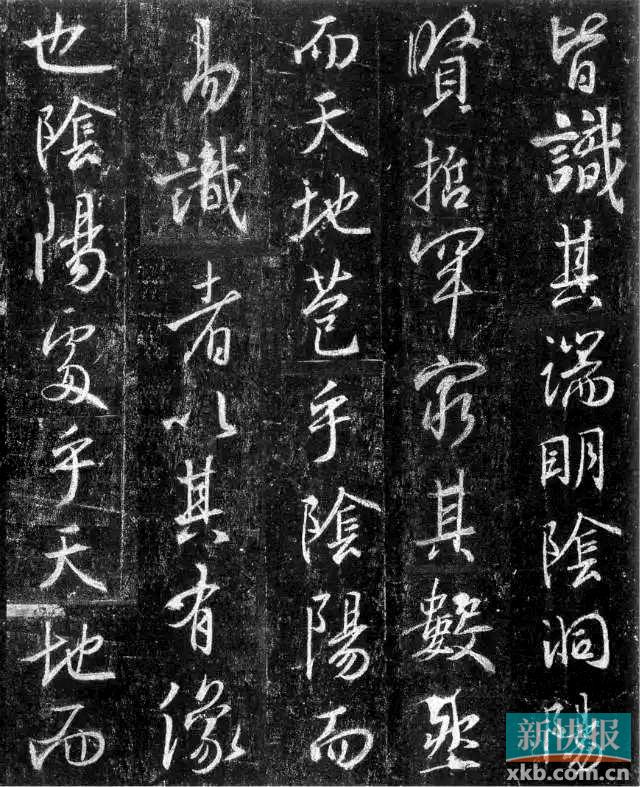 皆識其端明陰洞陽
賢哲罕窮其數然
而天地苞乎陰陽而
易識者以其有像
也陰陽處乎天地而
新快报
xkb.com.cn